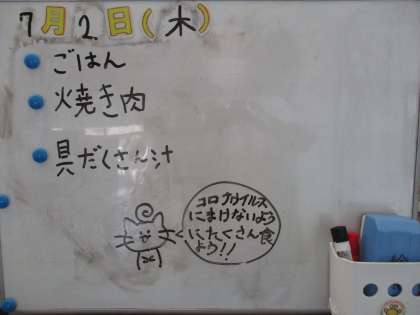 7月2日(木)
ごはん
焼き肉
具だくさん汁
コロナウイルス
にまけないよう
にたくさん食
よう!!